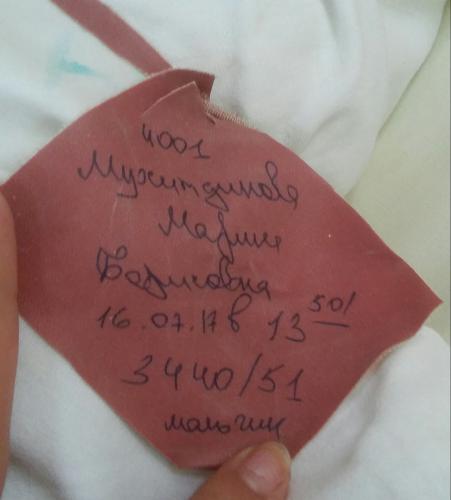 4001
Мухитдинова
Марина
Борисовна
16.07.17 в 13 50/
3440/51
мальчик